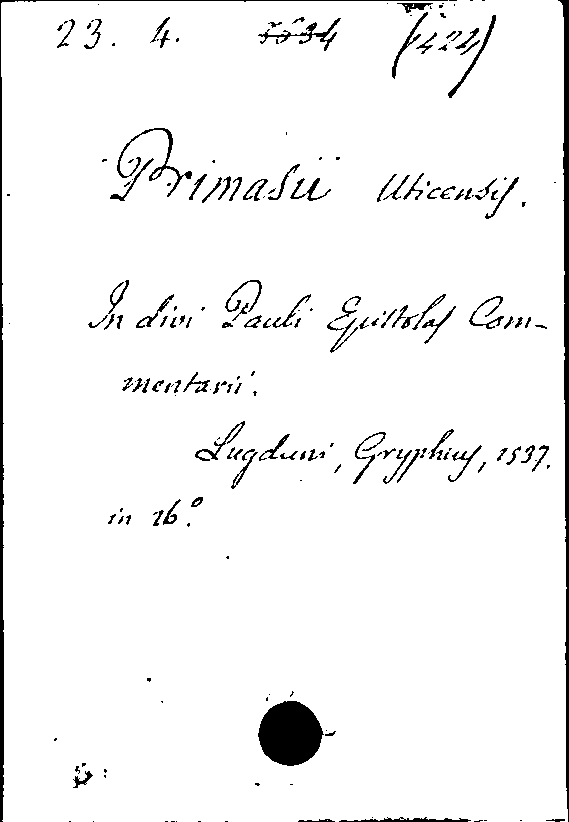 23. 4. 5534 (1424)
Primasii Uticensis.
In divi Pauli Epistolas Com-
mentarii.
Lugduni, Gryphius, 1537.
in 16.º